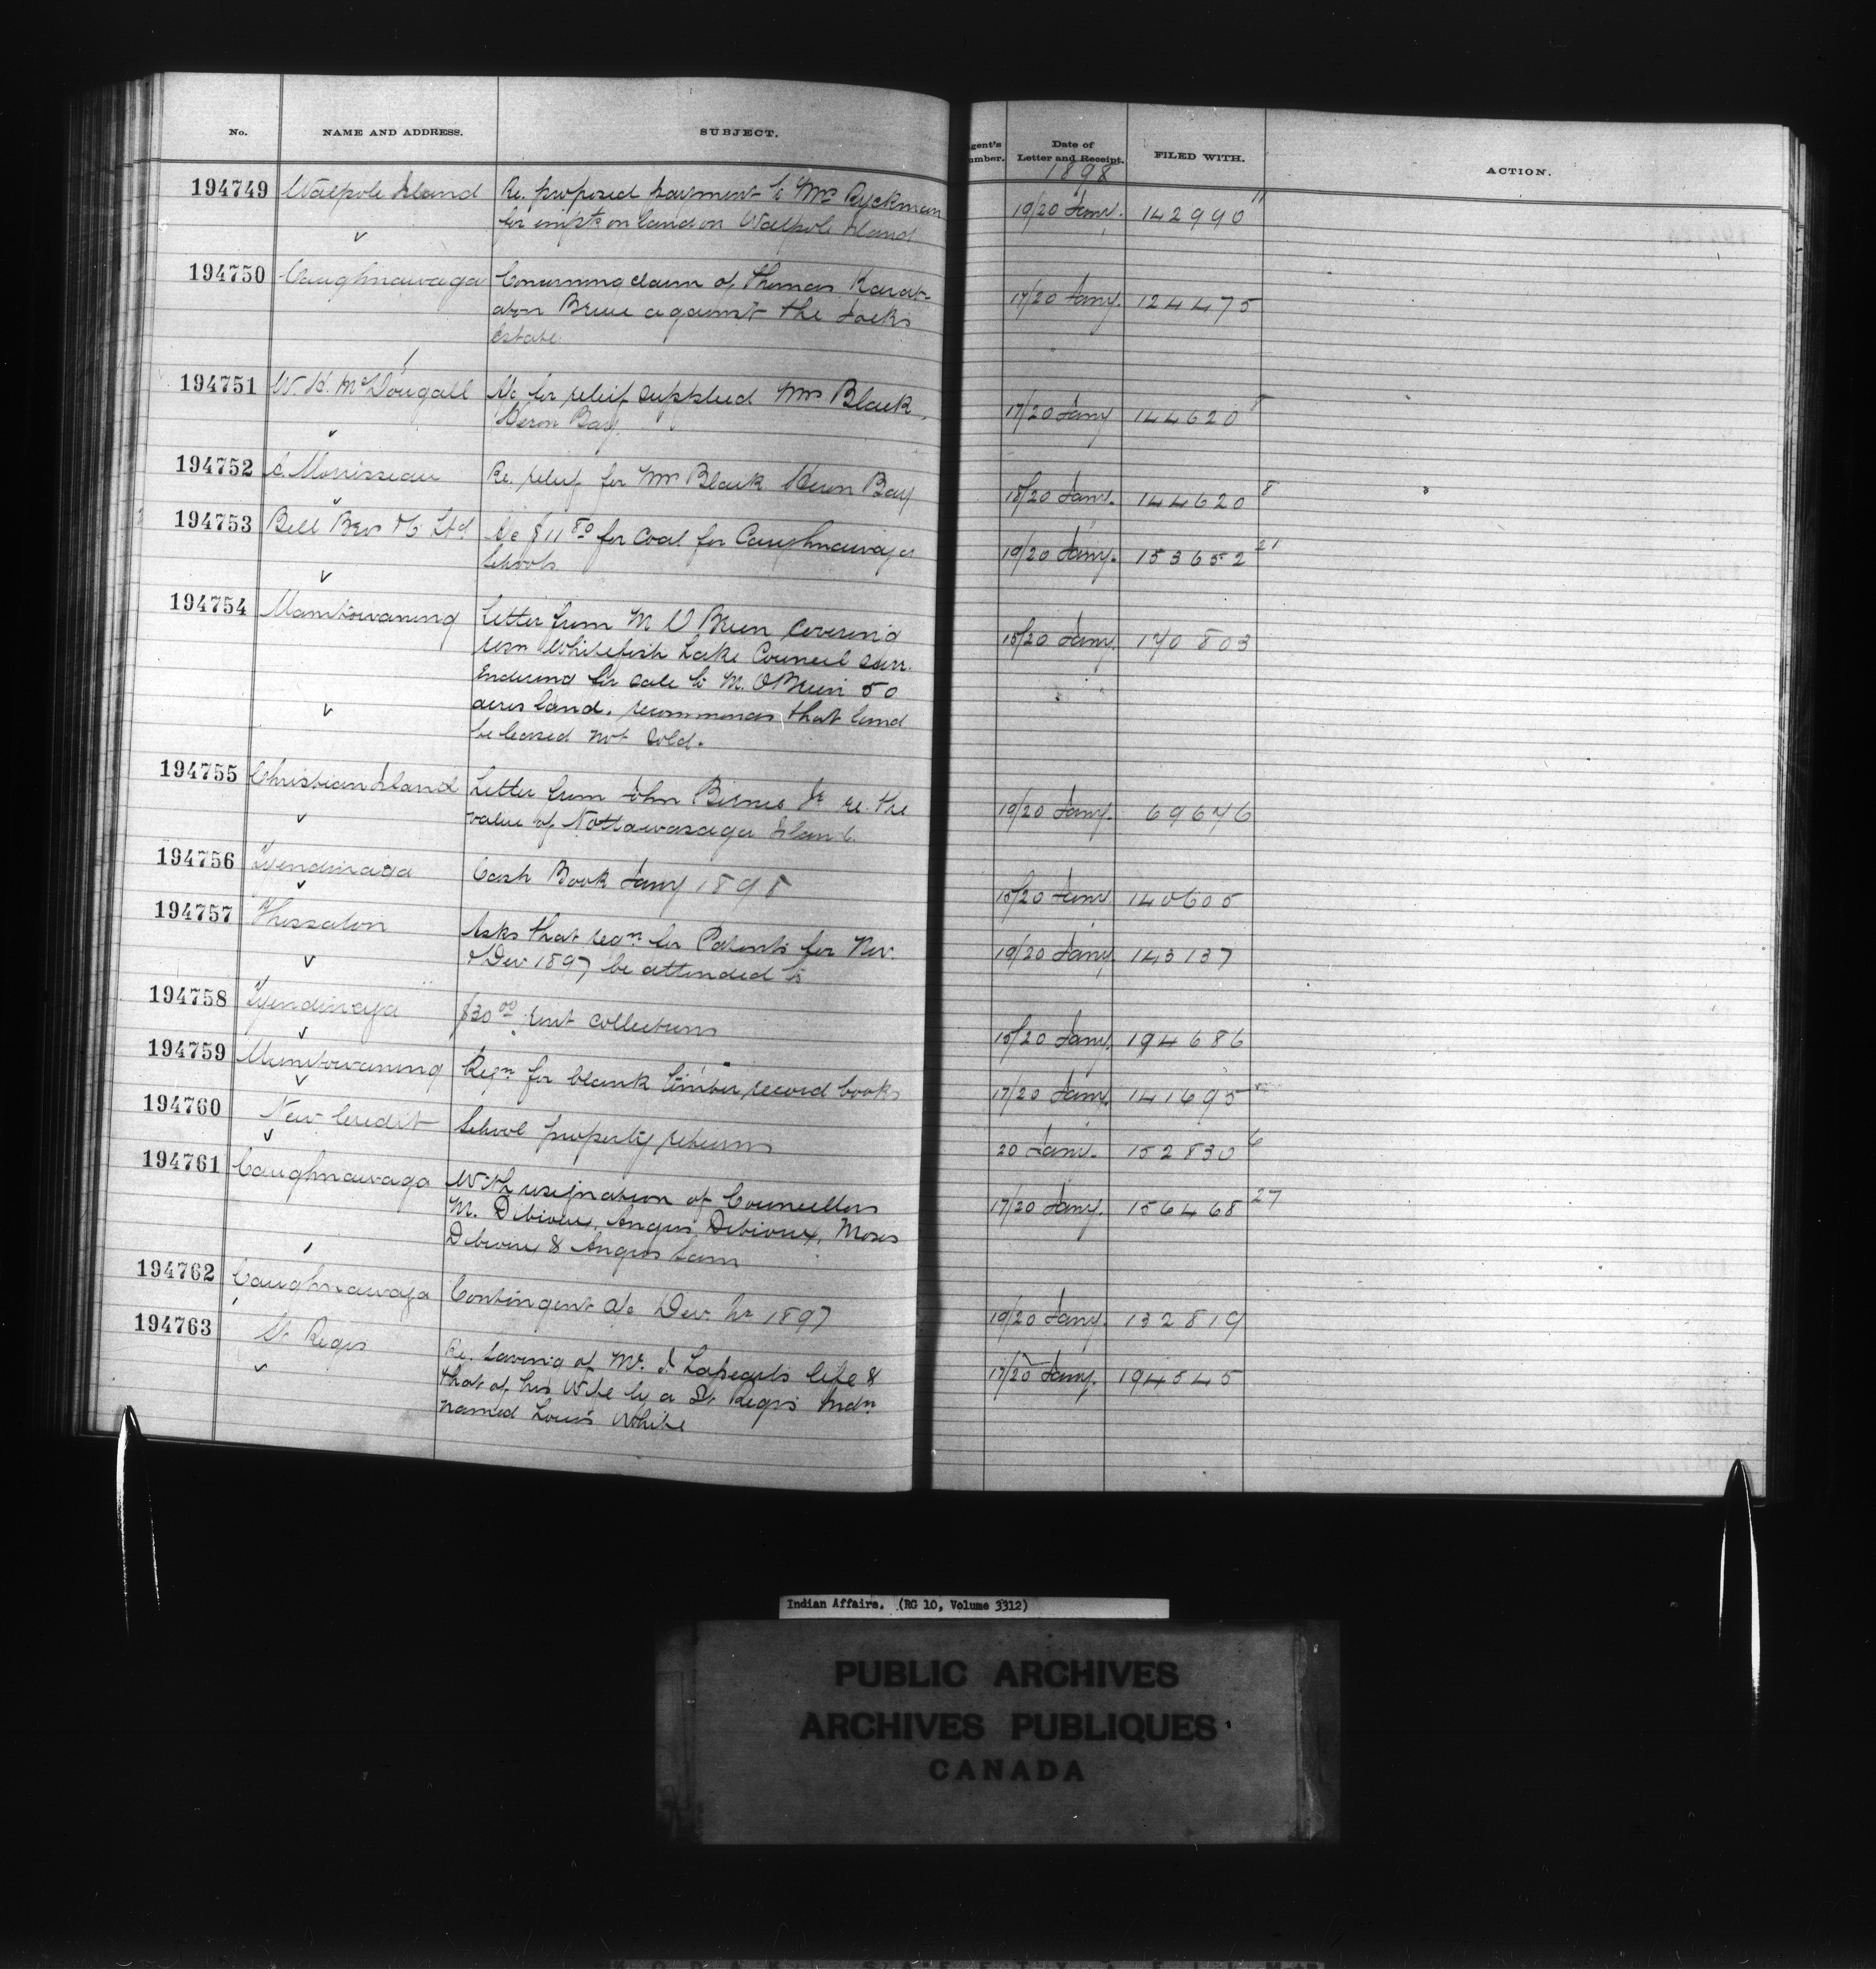 No. NAME AND ADDRESS. SUBJECT. Agent's Number. Date of Letter and Receipt. FILED WITH. ACTION.
1898
194749 Walpole Island Re. proposed payment to Mrs Ryckman 19/20 Jany. 142990 11
for impts on land on Walpole Island
194750 Caughnawaga Concerning claim of Thomas Karat- 17/20 Jany. 124475
against the Jacks
Estate
194751 W. H. McDougall A/c for relief supplied Mrs Black, 17/20 Jany 144620
Heron Bay.
194752 Morrisseau Re. relief for Mrs Black Heron Bay 18/20 Jany. 144620 8
194753 Bell Bros & Co Ltd. A/c $11 80 for coal for Caughnawaga 19/20 Jany. 153652 21
Schools
194754 Manitowaning Letter from M O'Brien covering 15/20 Jany. 170803
resn Whitefish Lake Council surr.
endering for sale to M. O'Brien 50
acres land. recommends that land
be leased not sold.
194755 Christian Island Letter from John Birnes Jr re. the 19/20 Jany. 69676
value of Nottawasaga Island.
194756 Tyendinaga Cash Book Jany 1898 15/20 Jany 140605
194757 Thessalon Asks that reqn for Patents for Nov. 19/20 Jany. 143137
& Dec. 1897 be attended to
194758 Tyendinaga $30 00 rent collections 15/20 Jany. 194686
194759 Manitowaning Reqn for blank timber record books 17/20 Jany. 141695
194760 New Credit School property returns 20 Jany. 152830 6
194761 Caughnawaga With resignation of Councillors 17/20 Jany. 156468 27
M. Dibioux, Angus Dibioux, Moses
Dibioux & Angus Lam
194762 Caughnawaga Contingent a/c Dec. Qr 1897 19/20 Jany. 132819
194763 St Regis Re. saving of Mr. J. life & 17/20 Jany. 194545
that of his Wife by a St. Regis Indn
named Louis White
Indian Affairs. (RG 10, Volume 3312)
PUBLIC ARCHIVES
ARCHIVES PUBLIQUES
CANADA